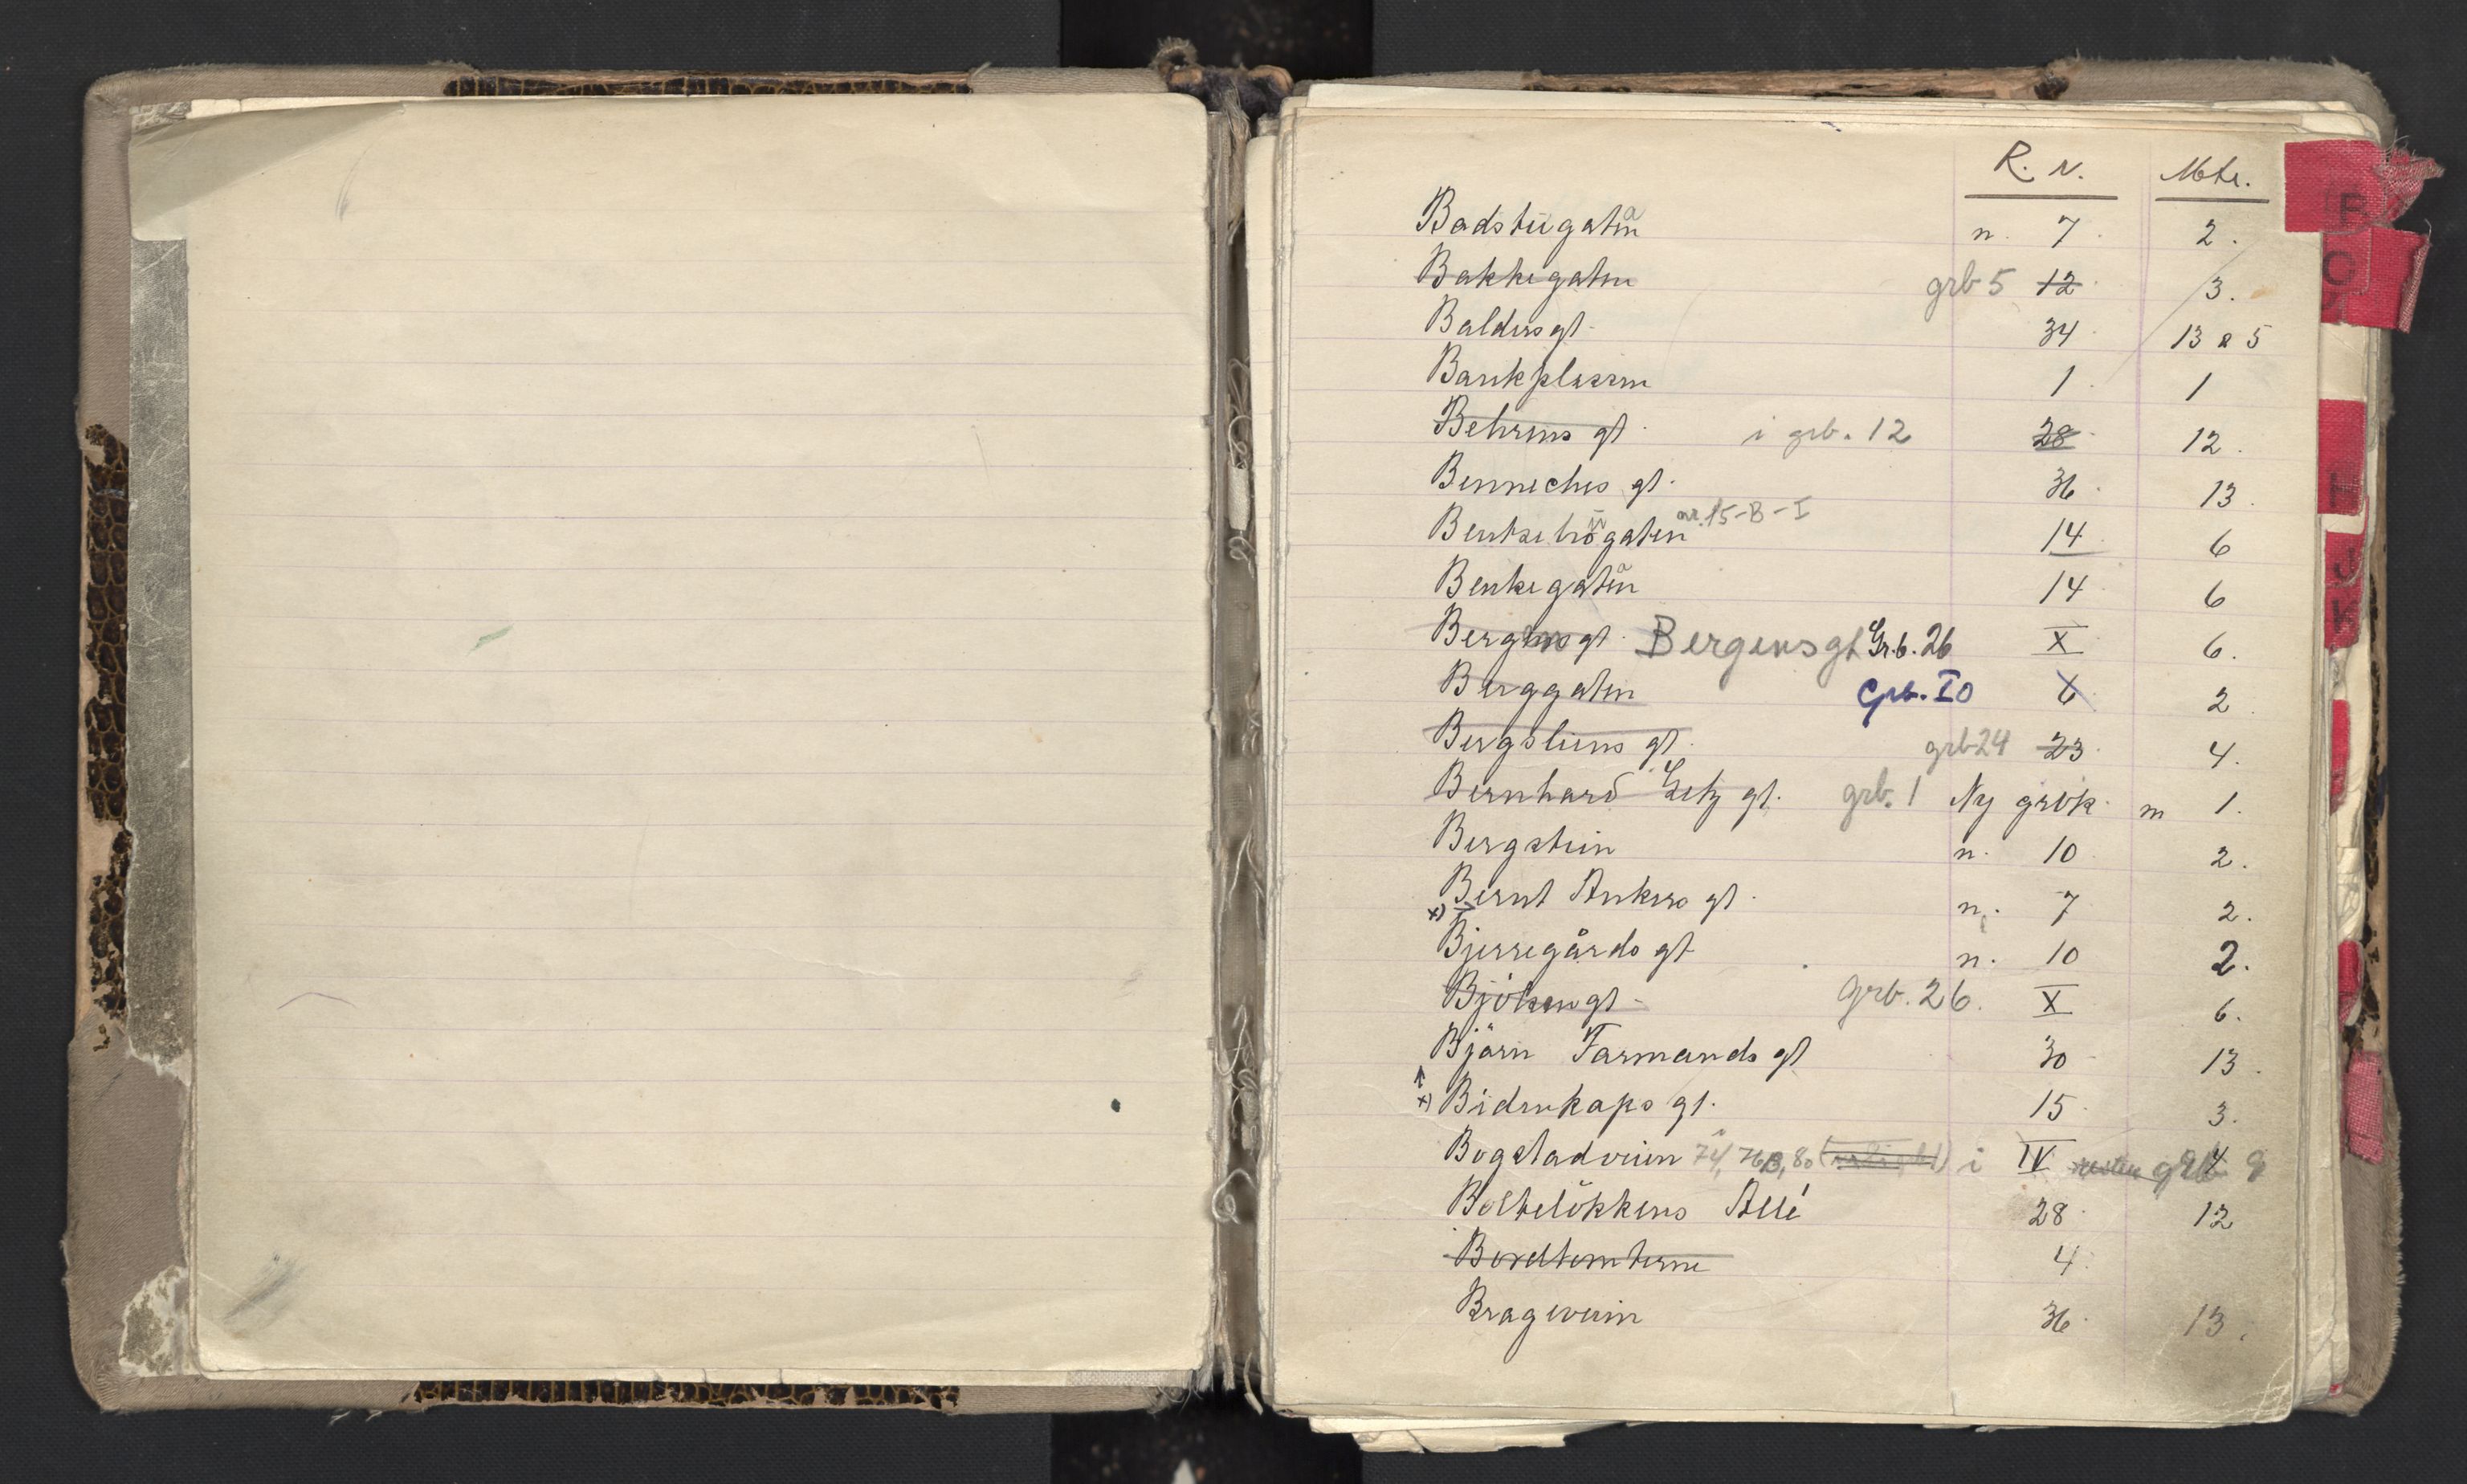 R. N. Mtr.
Badstugaten a n. 7 2.
Bakkegaten grb 5 12 3.
Baldersgt. 34 13 & 5
Bankplassen 1 1
Behrens gt. i grb. 12 28 12.
Benneches gt. 36 13.
Bentsebrogaten nr. 15-B-I 14 6
Benkegaten a 14 6
Bergensgt. Bergensgt Grb. 26 X 6.
Berggaten Grb. 10 6 2
Bergsliens gt. grb 24 23 4.
Bernhard Getz gt. grb. 1 Ny grbk. m 1.
Bergstien n. 10 2.
Bernt Ankers gt. n. 7 2.
x)
Bjerregårds gt n. 10 2.
Bjölsengt. Grb. 26. X 6.
Bjarn Farmands gt 30 13.
x) Bidenkaps gt. 15 3.
Bogstadveien 74, 76B, 80 i IV resten grb 9
Boltelökkens Allé 28 12
Bordtomterne 4.
Brageveien 36 13.
B
O
J
K